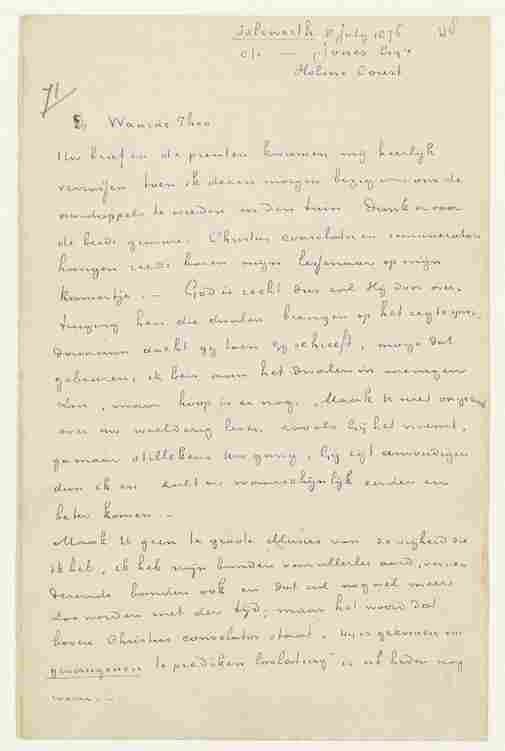 Isleworth 8 July 1876
c/o — Jones Esqre
Holme Court
71
Waarde Theo
Uw brief en de prenten kwamen mij heerlijk
verrassen toen ik dezen morgen bezig was om de
aardappels te wieden in den tuin Dank er voor
de beide gravures Christus consolator en remunerator
hangen reeds boven mijn lessenaar op mijn
kamertje. — God is recht dus zal Hij door over-
tuiging hen die dwalen brengen op het regte spoor,
daaraan dacht gij toen gij schreeft, moge dat
gebeuren, ik ben aan het dwalen in menigen
zin, maar hoop is er nog. Maak U niet ongerust
over uw weelderig leven, zooals gij het noemt,
ga maar stillekens uw gang, Gij zijt eenvoudiger
dan ik en zult er waarschijnlijk eerder en
beter komen. —
Maak U geen te groote illusies van de vrijheid die
ik heb, ik heb mijn banden van allerlei aard, verne-
derende banden ook en dat zal nog wel meer
zoo worden met der tijd; maar het woord dat
boven Christus consolator staat, "Hij is gekomen om
gevangenen te prediken loslating" is ook heden nog
waar. —